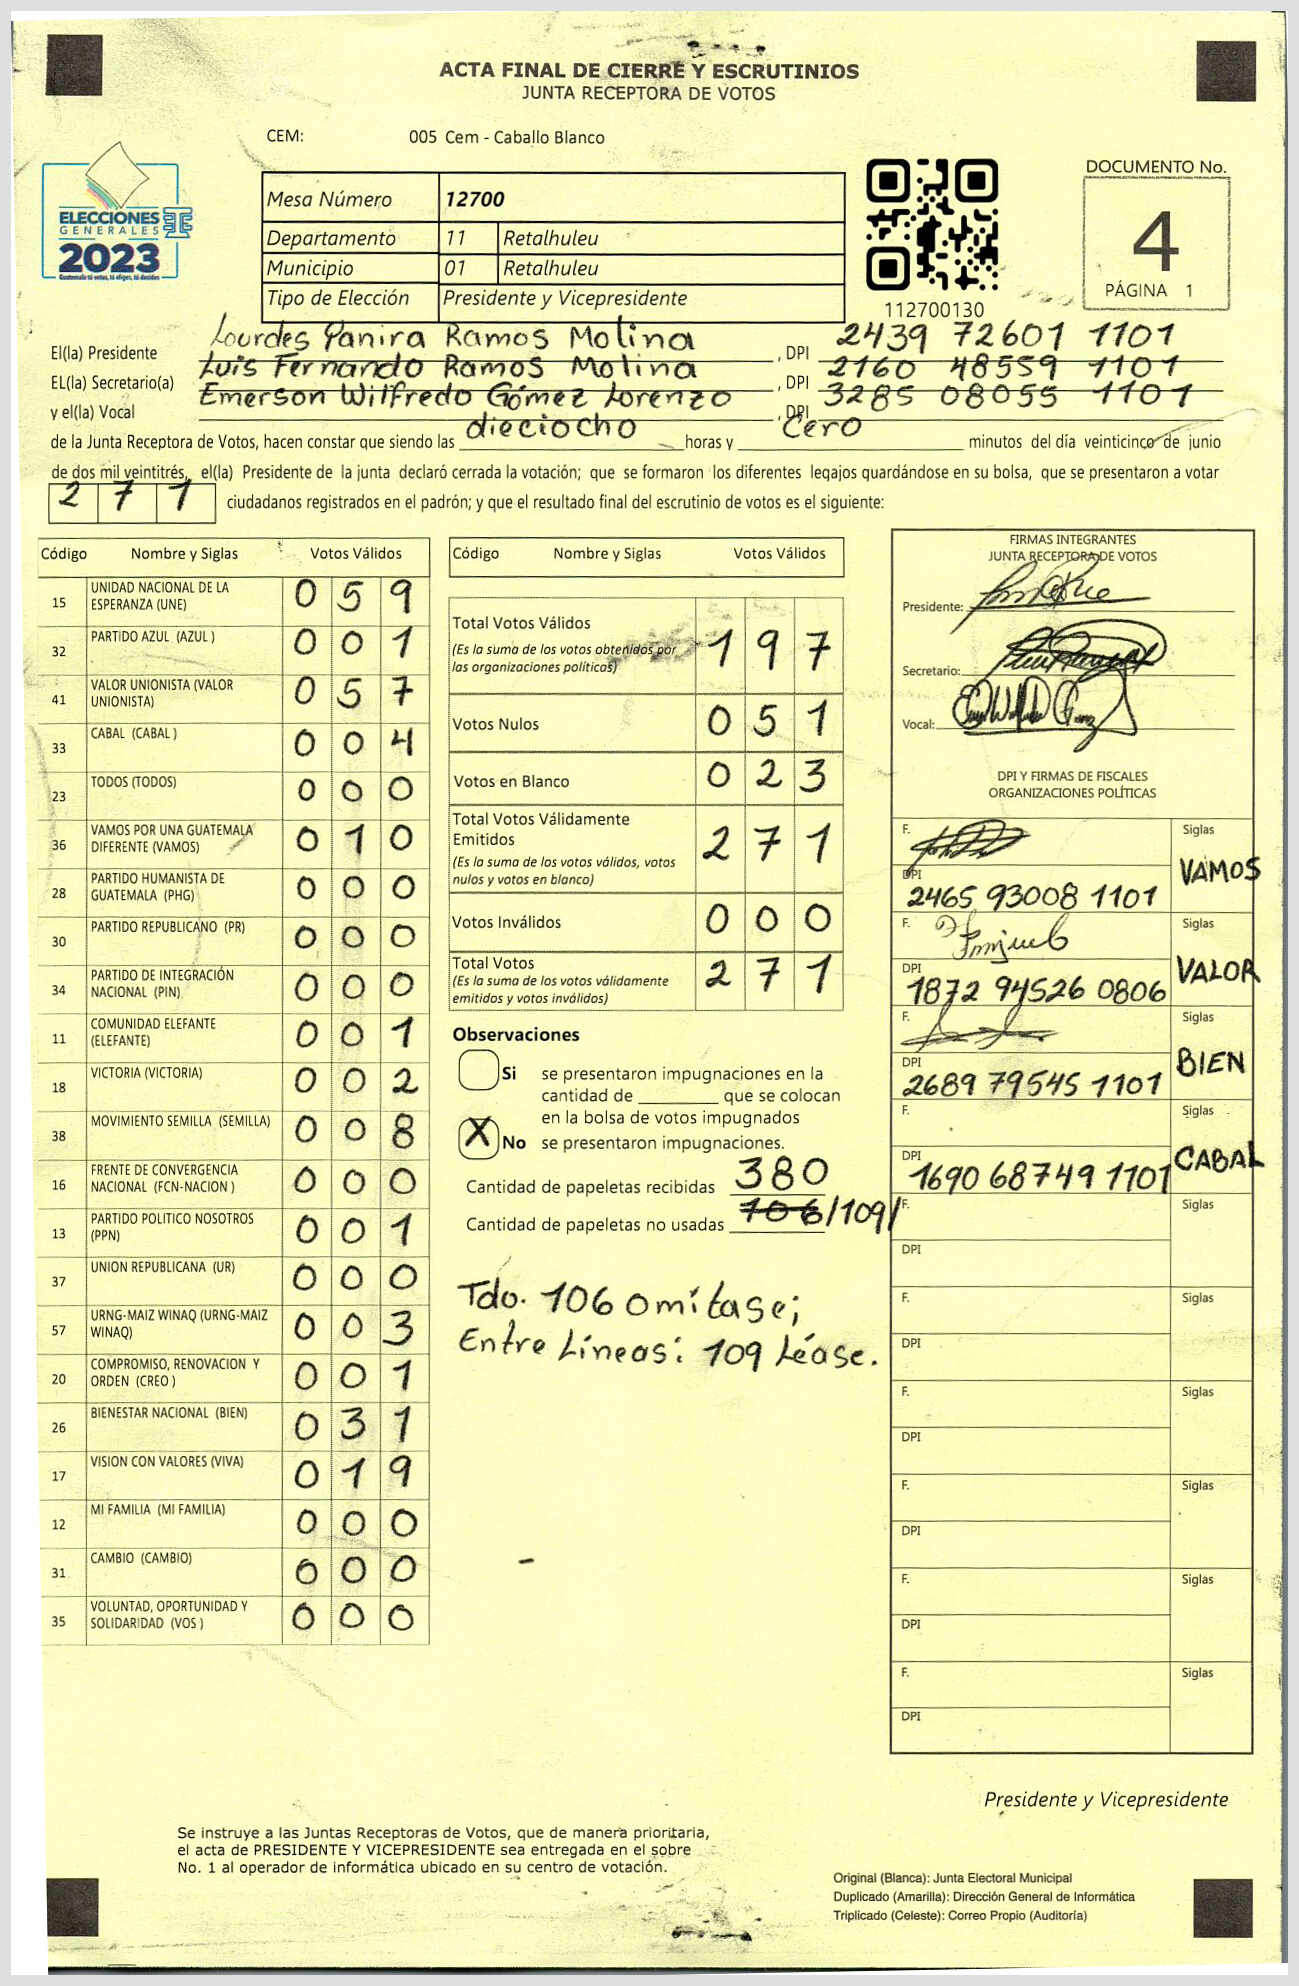 ACTA FINAL DE CIERRE Y ESCRUTINIOS
JUNTA RECEPTORA DE VOTOS
CEM: 005 Cem - Caballo Blanco
ELECCIONES
GENERALES
2023
Guatemala tú votas, tú eliges, tú decides
Mesa Número 12700
Departamento 11 Retalhuleu
Municipio 01 Retalhuleu
Tipo de Elección Presidente y Vicepresidente
112700130
DOCUMENTO No.
4
PÁGINA 1
El(la) Presidente Lourdes Yanira Ramos Molina , DPI 2439 72601 1101
EL(la) Secretario(a) Luis Fernando Ramos Molina , DPI 2160 48559 1101
y el(la) Vocal Emerson Wilfredo Gómez Lorenzo , DPI 3285 08055 1101
de la Junta Receptora de Votos, hacen constar que siendo las dieciocho horas y Cero minutos del día veinticinco de junio
de dos mil veintitrés, el(la) Presidente de la junta declaró cerrada la votación; que se formaron los diferentes legajos guardándose en su bolsa, que se presentaron a votar
2 7 1 ciudadanos registrados en el padrón; y que el resultado final del escrutinio de votos es el siguiente:
Código Nombre y Siglas Votos Válidos
15 UNIDAD NACIONAL DE LA ESPERANZA (UNE) 0 5 9
32 PARTIDO AZUL (AZUL ) 0 0 1
41 VALOR UNIONISTA (VALOR UNIONISTA) 0 5 7
33 CABAL (CABAL ) 0 0 4
23 TODOS (TODOS) 0 0 0
36 VAMOS POR UNA GUATEMALA DIFERENTE (VAMOS) 0 1 0
28 PARTIDO HUMANISTA DE GUATEMALA (PHG) 0 0 0
30 PARTIDO REPUBLICANO (PR) 0 0 0
34 PARTIDO DE INTEGRACIÓN NACIONAL (PIN) 0 0 0
11 COMUNIDAD ELEFANTE (ELEFANTE) 0 0 1
18 VICTORIA (VICTORIA) 0 0 2
38 MOVIMIENTO SEMILLA (SEMILLA) 0 0 8
16 FRENTE DE CONVERGENCIA NACIONAL (FCN-NACION ) 0 0 0
13 PARTIDO POLITICO NOSOTROS (PPN) 0 0 1
37 UNION REPUBLICANA (UR) 0 0 0
57 URNG-MAIZ WINAQ (URNG-MAIZ WINAQ) 0 0 3
20 COMPROMISO, RENOVACION Y ORDEN (CREO ) 0 0 1
26 BIENESTAR NACIONAL (BIEN) 0 3 1
17 VISION CON VALORES (VIVA) 0 1 9
12 MI FAMILIA (MI FAMILIA) 0 0 0
31 CAMBIO (CAMBIO) 0 0 0
35 VOLUNTAD, OPORTUNIDAD Y SOLIDARIDAD (VOS ) 0 0 0
Código Nombre y Siglas Votos Válidos
Total Votos Válidos 1 9 7
(Es la suma de los votos obtenidos por
las organizaciones políticas)
Votos Nulos 0 5 1
Votos en Blanco 0 2 3
Total Votos Válidamente
Emitidos 2 7 1
(Es la suma de los votos válidos, votos
nulos y votos en blanco)
Votos Inválidos 0 0 0
Total Votos 2 7 1
(Es la suma de los votos válidamente
emitidos y votos inválidos)
Observaciones
Si se presentaron impugnaciones en la
cantidad de ________ que se colocan
en la bolsa de votos impugnados
X No se presentaron impugnaciones.
Cantidad de papeletas recibidas 380
Cantidad de papeletas no usadas 106/109/
Tdo. 106 omítase;
Entre Líneas: 109 Léase.
FIRMAS INTEGRANTES
JUNTA RECEPTORA DE VOTOS
Presidente:
Secretario:
Vocal:
DPI Y FIRMAS DE FISCALES
ORGANIZACIONES POLÍTICAS
F. Siglas
DPI VAMOS
2465 93008 1101
F. Siglas
DPI VALOR
1872 94526 0806
F. Siglas
DPI BIEN
2689 79545 1101
F. Siglas
DPI CABAL
1690 68749 1101
F. Siglas
DPI
F. Siglas
DPI
F. Siglas
DPI
F. Siglas
DPI
F. Siglas
DPI
F. Siglas
DPI
Presidente y Vicepresidente
Se instruye a las Juntas Receptoras de Votos, que de manera prioritaria,
el acta de PRESIDENTE Y VICEPRESIDENTE sea entregada en el sobre
No. 1 al operador de informática ubicado en su centro de votación.
Original (Blanca): Junta Electoral Municipal
Duplicado (Amarilla): Dirección General de Informática
Triplicado (Celeste): Correo Propio (Auditoría)